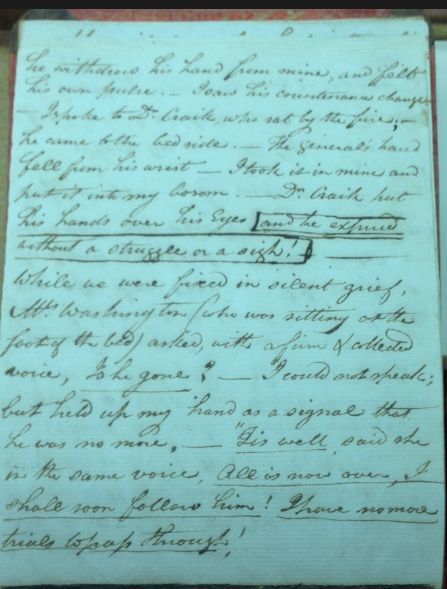 he withdrew his hand from mine, and felt
his own pulse. — I saw his countenance change
— I spoke to Dr. Craik, who sat by the fire; —
he came to the bed side. — The general's hand
fell from his wrist — I took it in mine and
put it into my bosom. — Dr. Craik put
his hands over his Eyes and he expired
without a struggle or a sigh!
While we were fixed in silent grief,
Mrs. Washington (who was sitting at the
foot of the bed) asked, with a firm & collected
voice, Is he gone? — I could not speak;
but held up my hand as a signal that
he was no more. — "Tis well, said she
in the same voice, All is now over, I
shall soon follow him! I have no more
trials to pass through!